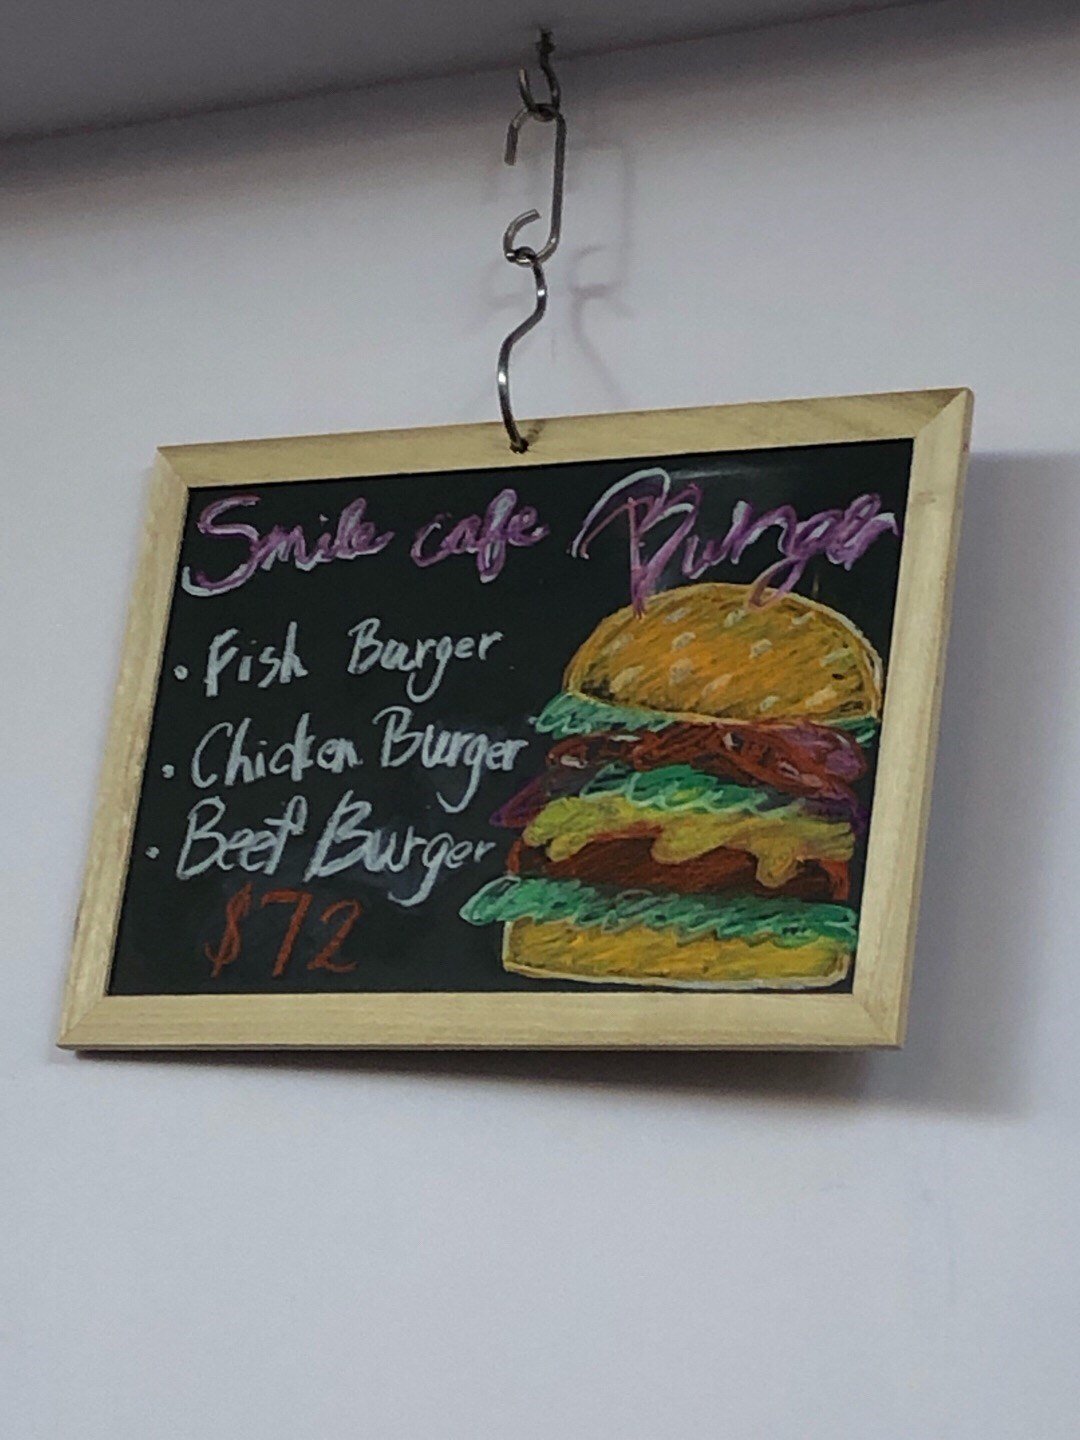 Smile cafe Burger
• Fish Burger
• Chicken Burger
• Beef Burger
$72